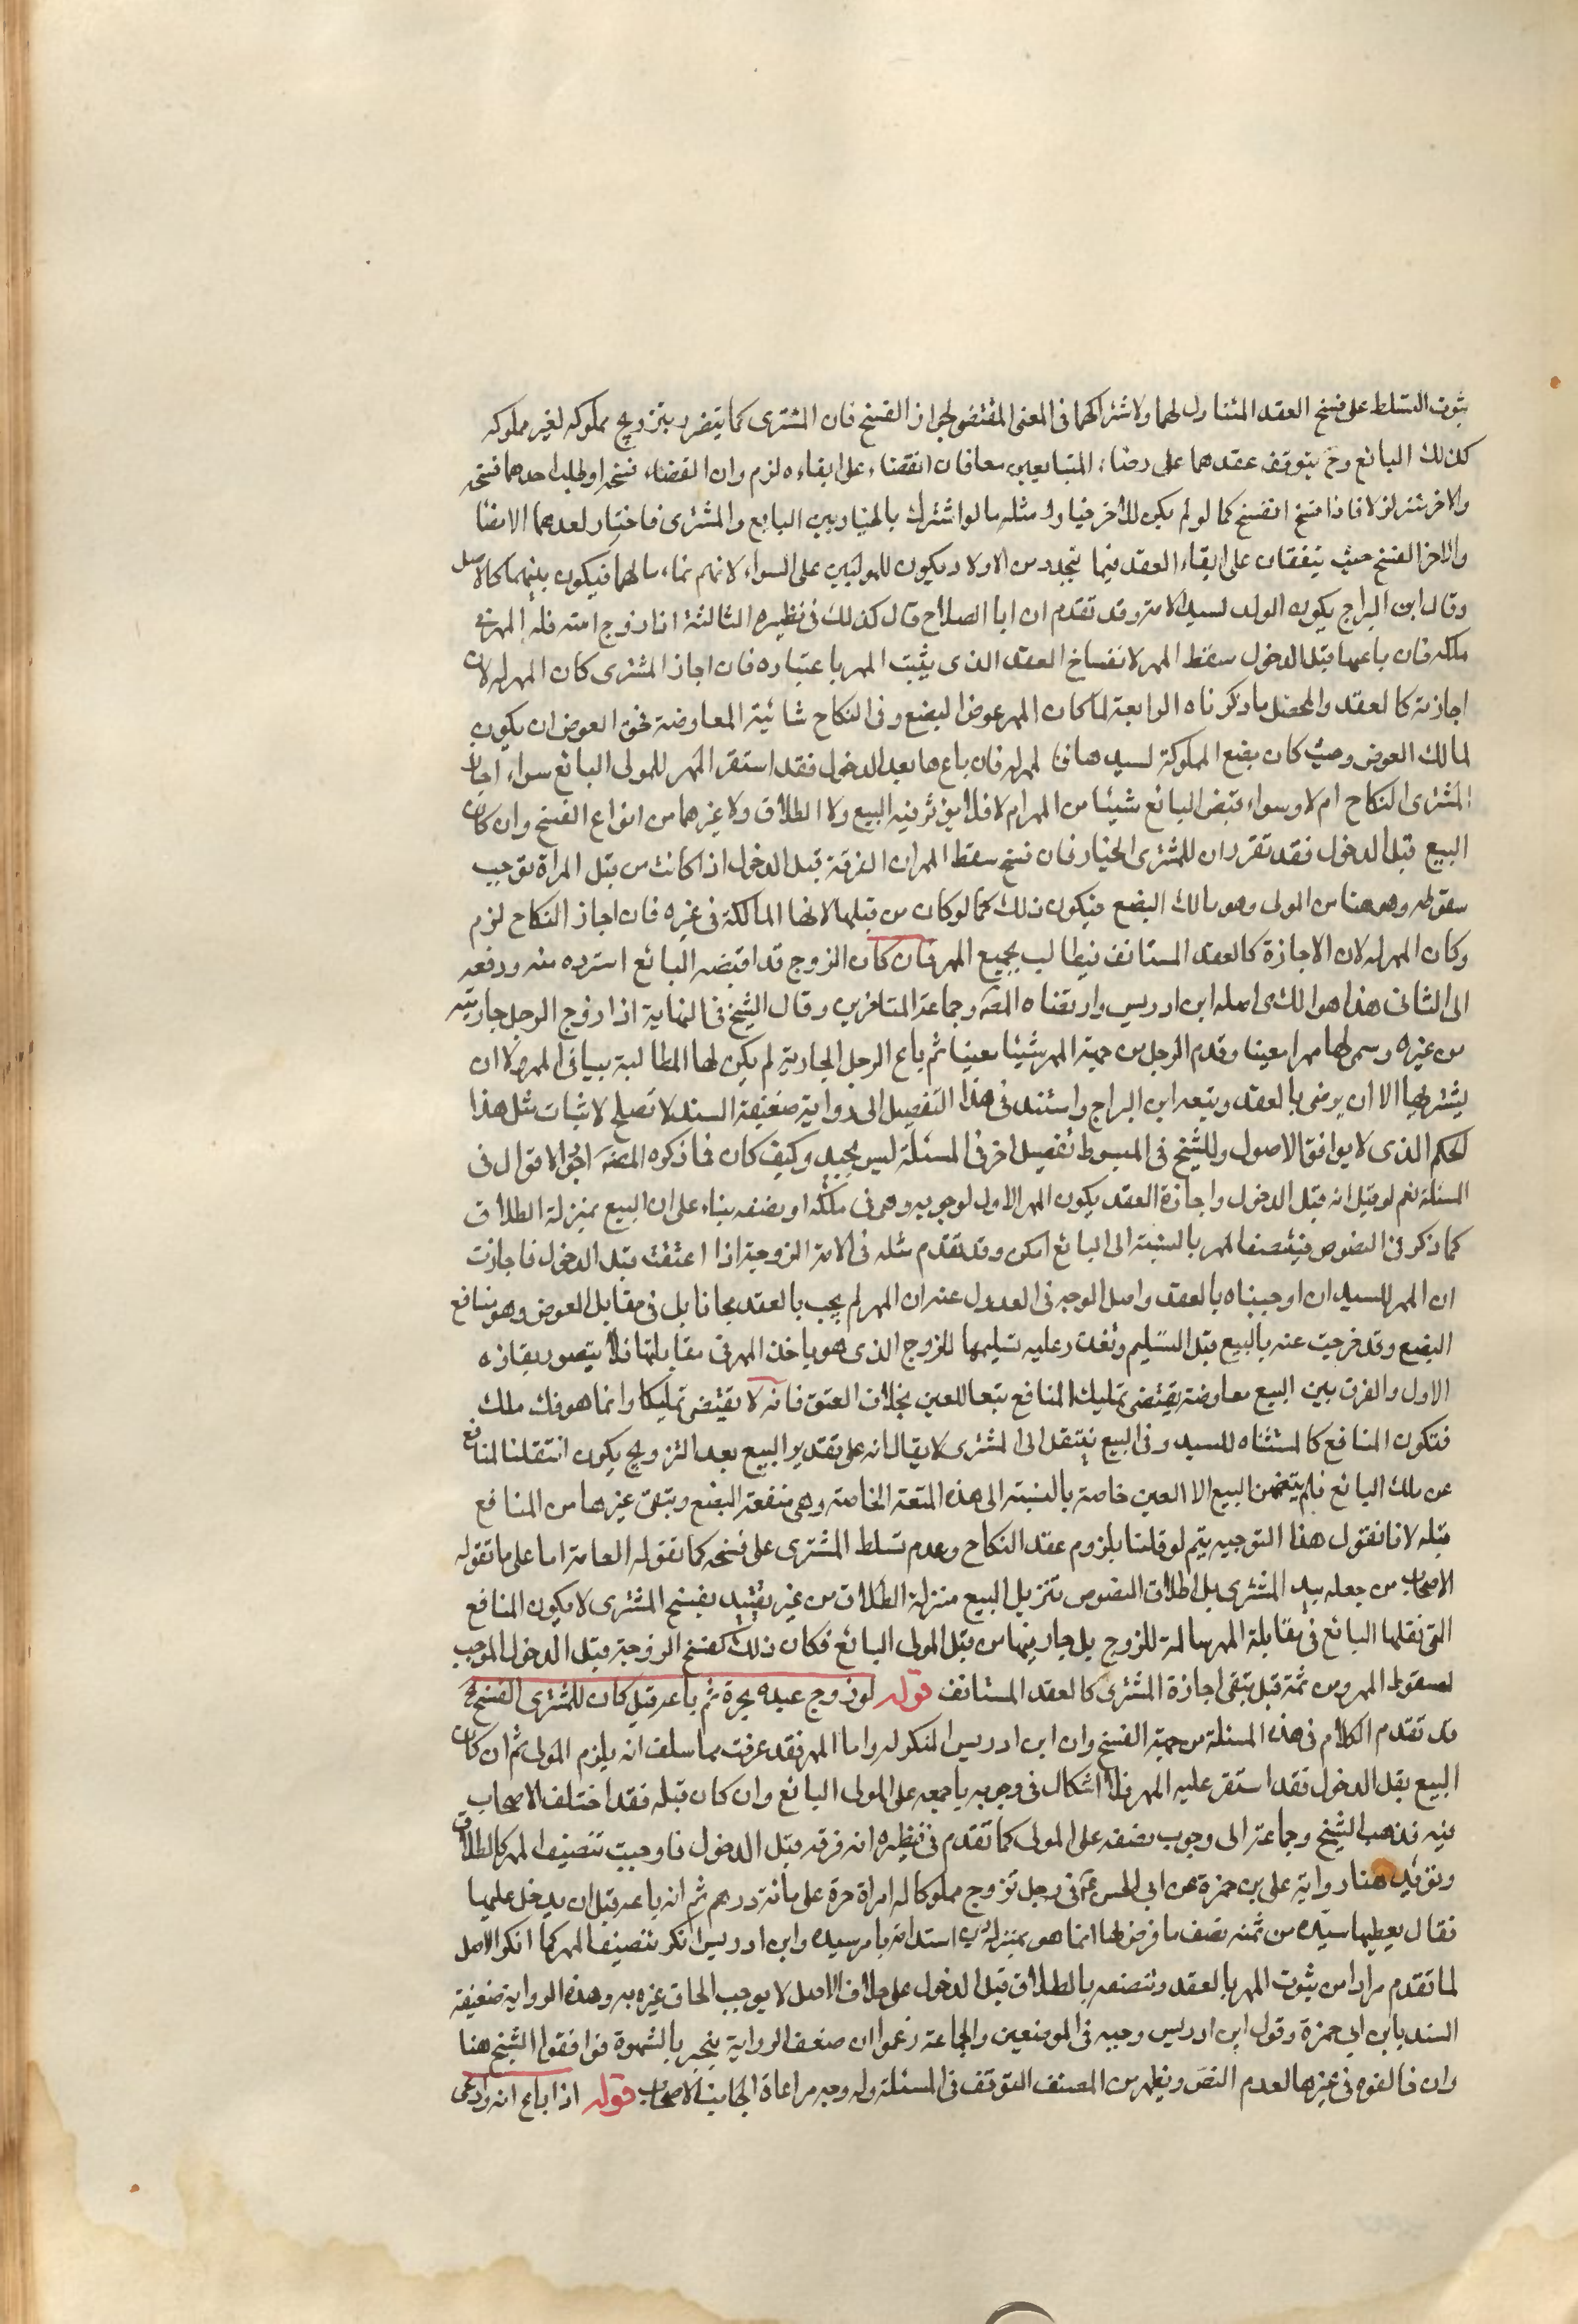 ثبوت التسلط على فسخ العقد المتناول لهما ولاشتراكهما فى المعنى المقتضى لجواز الفسخ فان المشترى كما يتضرر بتزويج مملوكه لغير مملوكه
كذلك البائع وح يتوقف عقدهما على رضاء المتبايعين معا فان اتفقا على ابقاءه لزم وان اتفقا على فسخه او طلب احدهما فسخه
والاخر لزومه فاذا فسخ انفسخ كما لو لم يكن للاخر خيار ومثله ما لو اشترك بالخيار بين البايع والمشترى فاختار احدهما الامضا
والاخر الفسخ حيث يتفقان على ابقاء العقد فيما يتجدد من الاولاد يكون للموليين على السواء لانهم نماء مالهما فيكون بينهما كالاصل
وقال ابن البراج يكون الولد لسيد الامة وقد تقدم ان ابا الصلاح قال كذلك فى نظيره الثالثة اذا زوج امته فله المهر فى
ملكه فان باعها قبل الدخول سقط المهر لانفساخ العقد الذى يثبت المهر باعتباره فان اجاز المشترى كان المهر له لان
اجازته كالعقد والمحصل ما ذكرناه الرابعة لما كان المهر عوض البضع وفى النكاح شائبة المعاوضة فحق العوض ان يكون
لمالك العوض وحيث كان بضع المملوكة لسيدها فالمهر له فان باعها بعد الدخول فقد استقر المهر للمولى البائع سواء اجاز
المشترى النكاح ام لا وسواء قبض البائع شيئا من المهر ام لا فلا يؤثر فيه البيع ولا الطلاق ولا غيرهما من انواع الفسخ وان كان
البيع قبل الدخول فقد تقرر ان للمشترى الخيار فان فسخ سقط المهر لان الفرقة قبل الدخول اذا كانت من قبل المراة توجب
سقوطه وهو هنا من المولى وهو مالك البضع فيكون ذلك كما لو كان من قبلها لانها المالكة فى غيره فان اجاز النكاح لزم
وكان المهر له لان الاجازة كالعقد المستانف فيطالب بجميع المهر فان كان الزوج قد اقبضه البائع استرده منه ودفعه
الى الثانى هذا هو الذى اصله ابن ادريس وارتضاه المصه وجماعة المتاخرين وقال الشيخ فى النهاية اذا زوج الرجل جاريته
من غيره وسمى لها مهرا معينا وقدم الرجل من جهة المهر شيئا معينا ثم باع الرجل الجارية لم يكن لها المطالبة بباقى المهر ولا لمن
يشتريها الا ان يرضى بالعقد وتبعه ابن البراج واستند فى هذا التفصيل الى رواية ضعيفة السند لا تصلح لاثبات مثل هذا
الحكم الذى لا يوافق الاصول وللشيخ فى المبسوط تفصيل اخر فى المسئلة ليس بجيد وكيف كان فما ذكره المصه اجود الاقوال فى
المسئلة نعم لو قيل انه قبل الدخول واجازة العقد يكون المهر للاول لوجوبه وهى فى ملكه او نصفه بناء على ان البيع بمنزلة الطلاق
كما ذكر فى النصوص فيتنصف المهر بالنسبة الى البائع امكن وقد تقدم مثله فى الامة الزوجة اذا اعتقت قبل الدخول فاجازت
ان المهر للسيد ان اوجبناه بالعقد واصل الوجه فى العدول عنه ان المهر لم يجب بالعقد مجانا بل فى مقابل العوض وهو منافع
البضع وقد خرجت عنه بالبيع قبل التسليم وتعذر عليه تسليمها للزوج الذى هو ياخذ المهر فى مقابلتها فلا يتصور بقاؤه
الاول والفرق بين البيع معاوضة يقتضى تمليك المنافع تبعا للعين بخلاف العتق فانه لا يقتضى تمليكا وانما هو فك ملك
فتكون المنافع كالمستثناه للسيد وفى البيع ينتقل الى المشترى لا يقال انه على تقدير البيع بعد التزويج يكون انتقلت المنافع
عن ملك البائع فلم يتضمن البيع الا العين خاصة بالنسبة الى هذه المتعة الخاصة وهى منفعة البضع وتبقى غيرها من المنافع
قبله لانا نقول هذا التوجيه يتم لو قلنا بلزوم عقد النكاح وعدم تسلط المشترى على فسخه كما تقوله العامة اما على ما تقوله
الاصحاب من جعله بيد المشترى بل اطلاق النصوص تنزيل البيع منزلة الطلاق من غير تقييد بفسخ المشترى لا يكون المنافع
التى نقلها البائع فى مقابلة المهر سالمة للزوج بل جاء ... منها من قبل المولى البائع فكان ذلك كفسخ الزوجة قبل الدخول الموجب
لسقوط المهر ومن ثمة قيل تبقى اجازة المشترى كالعقد المستانف قوله لو زوج عبده بحرة ثم باعه قيل كان للمشترى الفسخ الخ
قد تقدم الكلام فى هذه المسئلة من جهة الفسخ وان ابن ادريس المنكر له واما المهر فقد عرفت مما سلف انه يلزم المولى ثم ان كان
البيع بعد الدخول فقد استقر عليه المهر فلا اشكال فى وجوبه باجمعه على المولى البائع وان كان قبله فقد اختلف الاصحاب
فيه فذهب الشيخ وجماعة الى وجوب نصفه على المولى كما تقدم فى نظيره انه فرقة قبل الدخول فاوجبت تنصيف المهر كالطلاق
وتؤيد هنا رواية على بن حمزة عن ابى الحسن ع فى رجل تزوج مملوكا له امراة حرة على مائة درهم ثم انه باعه قبل ان يدخل عليها
فقال يعطيها سيده من ثمنه نصف ما فرض لها انما هو بمنزلة دين استدانه بامر سيده وابن ادريس انكر تنصيف المهر كما انكر الاصل
لما تقدم مرارا من ثبوت المهر بالعقد وتنصفه بالطلاق قبل الدخول على خلاف الاصل لا يوجب الحاق غيره به وهذه الرواية ضعيفة
السند بابن ابى حمزة وقول ابن ادريس وجيه فى الموضعين والجماعة زعموا ان ضعف الرواية ينجبر بالشهرة فوافقوا الشيخ هنا
وان خالفوه فى غيرها لعدم النص ويظهر من المصنف التوقف فى المسئلة وله وجه مراعاة لجانب الاصحاب قوله اذا باع امة وادعى